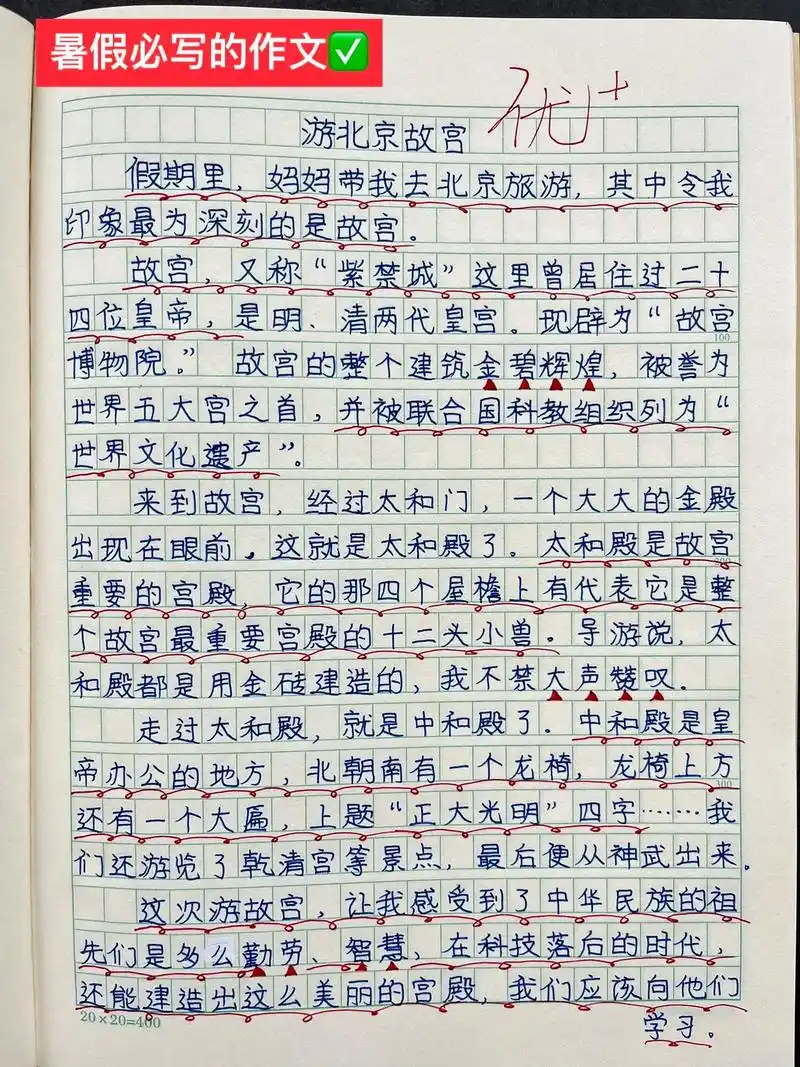 暑假必写的作文✅
优+
游北京故宫
假期里，妈妈带我去北京旅游，其中令我
印象最为深刻的是故宫。
故宫，又称“紫禁城”这里曾居住过二十
四位皇帝，是明、清两代皇宫。现辟为“故宫
100
博物院。” 故宫的整个建筑金碧辉煌，被誉为
世界五大宫之首，并被联合国科教组织列为“
世界文化遗产”。
来到故宫，经过太和门，一个大大的金殿
出现在眼前．这就是太和殿了．太和殿是故宫
200
重要的宫殿，它的那四个屋檐上有代表它是整
个故宫最重要宫殿的十二头小兽．导游说，太
和殿都是用金砖建造的，我不禁大声赞叹．
走过太和殿，就是中和殿了．中和殿是皇
帝办公的地方，北朝南有一个龙椅，龙椅上方
300
还有一个大匾，上题“正大光明”四字……我
们还游览了乾清宫等景点，最后便从神武出来．
这次游故宫，让我感受到了中华民族的祖
先们是多么勤劳、智慧，在科技落后的时代，
还能建造出这么美丽的宫殿，我们应该向他们
20×20=400
学习．